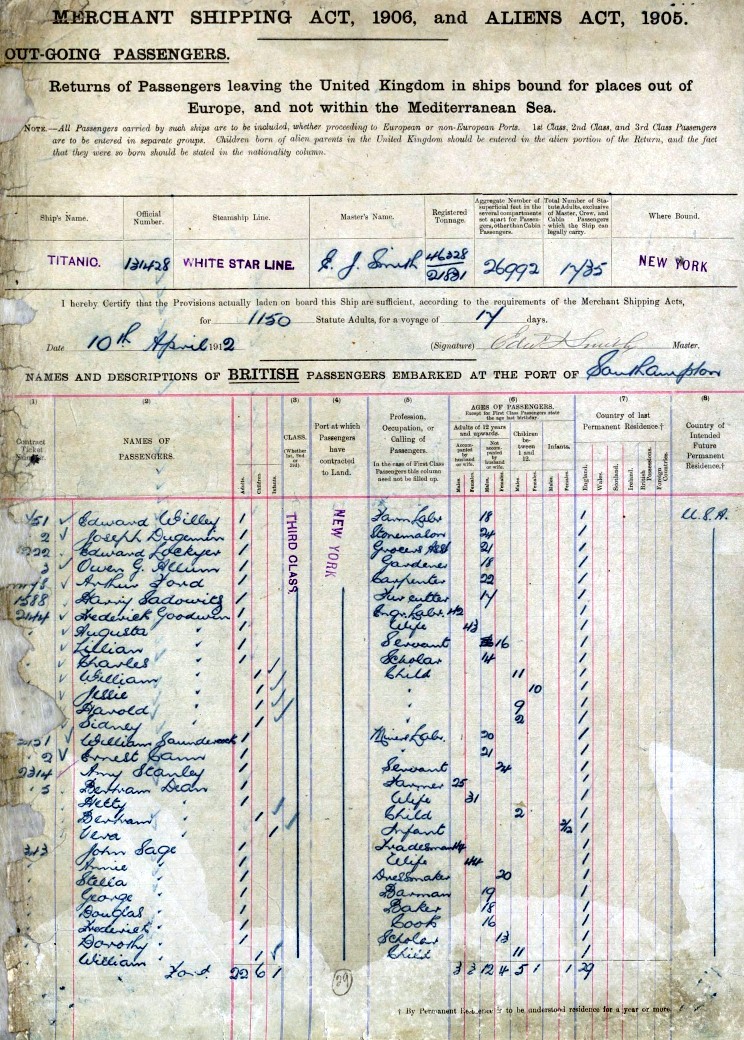 MERCHANT SHIPPING ACT, 1906, and ALIENS ACT, 1905.
OUT-GOING PASSENGERS.
Returns of Passengers leaving the United Kingdom in ships bound for places out of
Europe, and not within the Mediterranean Sea.
NOTE.—All Passengers carried by such ships are to be included, whether proceeding to European or non-European Ports. 1st Class, 2nd Class, and 3rd Class Passengers
are to be entered in separate groups. Children born of alien parents in the United Kingdom should be entered in the alien portion of the Return, and the fact
that they were so born should be stated in the nationality column.
Ship's Name. Official Number. Steamship Line. Master's Name. Registered Tonnage. Aggregate Number of superficial feet in the several compartments set apart for Passengers, other than Cabin Passengers. Total Number of Statute Adults, exclusive of Master, Crew, and Cabin Passengers which the Ship can legally carry. Where Bound.
TITANIC. 131428 WHITE STAR LINE. E. J. Smith 46328 / 21831 26992 1735 NEW YORK
I hereby Certify that the Provisions actually laden on board this Ship are sufficient, according to the requirements of the Merchant Shipping Acts,
for 1150 Statute Adults, for a voyage of 17 days.
Date 10th April 1912 (Signature) Edw J Smith Master.
NAMES AND DESCRIPTIONS OF BRITISH PASSENGERS EMBARKED AT THE PORT OF Southampton
(1) (2) (3) (4) (5) (6) (7) (8)
Contract Ticket Number. NAMES OF PASSENGERS. Adults. Children. Infants. CLASS. (Whether 1st, 2nd or 3rd) Port at which Passengers have contracted to Land. Profession, Occupation, or Calling of Passengers. In the case of First Class Passengers this column need not be filled up. AGES OF PASSENGERS. Except for First Class Passengers state the age last birthday. Adults of 12 years and upwards. Accompanied by husband or wife. Not accompanied by husband or wife. Children between 1 and 12. Infants. Males. Females. Males. Females. Males. Females. Males. Females. Country of last Permanent Residence.† England. Wales. Scotland. Ireland. British Possessions. Foreign Countries. Country of Intended Future Permanent Residence.†
THIRD CLASS
NEW YORK
Edward Willey 1 Farm Labr 18 1 U.S.A.
2 Joseph Dugemin 1 Stonemason 24 1
Edward Lockyer 1 Grocers Asst 21 1
3 Owen G. Allum 1 Gardener 18 1
Arthur Ford 1 Carpenter 22 1
1588 Harry Sadowitz 1 Fur cutter 17 1
2144 Frederick Goodwin 1 Engr Labr. 42 1
Augusta " 1 Wife 43 1
Lillian " 1 Servant 16 1
Charles " 1 Scholar 14 1
William " 1 Child 11 1
Jessie " 1 " 10 1
Harold " 1 " 9 1
Sidney " 1 " 2 1
William Saundercock 1 Miners Labr. 20 1
2 Ernest Cann 1 " 21 1
2314 Amy Stanley 1 Servant 24 1
5 Bertram Dean 1 Farmer 25 1
Hetty " 1 Wife 31 1
Bertram " 1 Child 2 1
Vera " 1 Infant 1
John Sage 1 Tradesman 44 1
Annie " 1 Wife 44 1
Stella " 1 Dressmaker 20 1
George " 1 Barman 19 1
Douglas " 1 Baker 18 1
Frederick " 1 Cook 16 1
Dorothy " 1 Scholar 13 1
William " 1 Child 11 1
Ford 22 6 1 29 3 3 12 4 5 1 1 29
† By Permanent Residence is to be understood residence for a year or more.